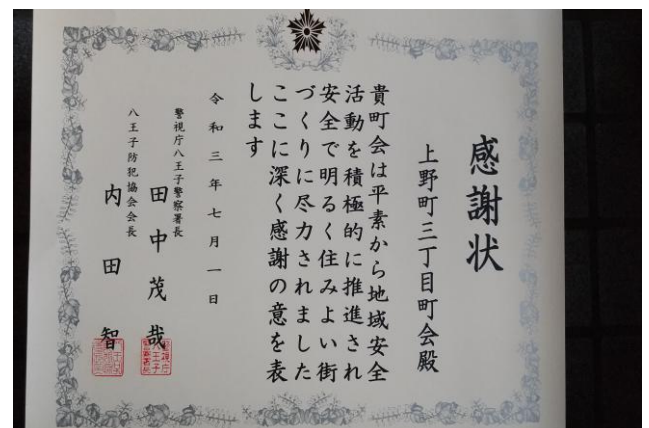 感謝状
上野町三丁目町会殿
貴町会は平素から地域安全
活動を積極的に推進され
安全で明るく住みよい街
づくりに尽力されました
ここに深く感謝の意を表
します
令和三年七月一日
警視庁八王子警察署長
田中茂哉
八王子防犯協会会長
内田智